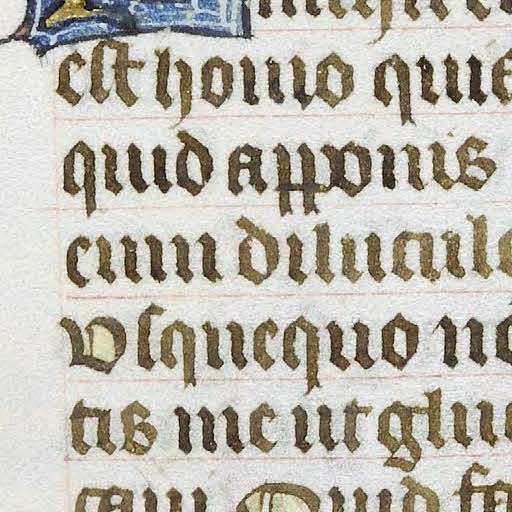 est homo quia
quid apponis
eum diluculo
Vsquequo no
tis me ut glu
eam Quid fa